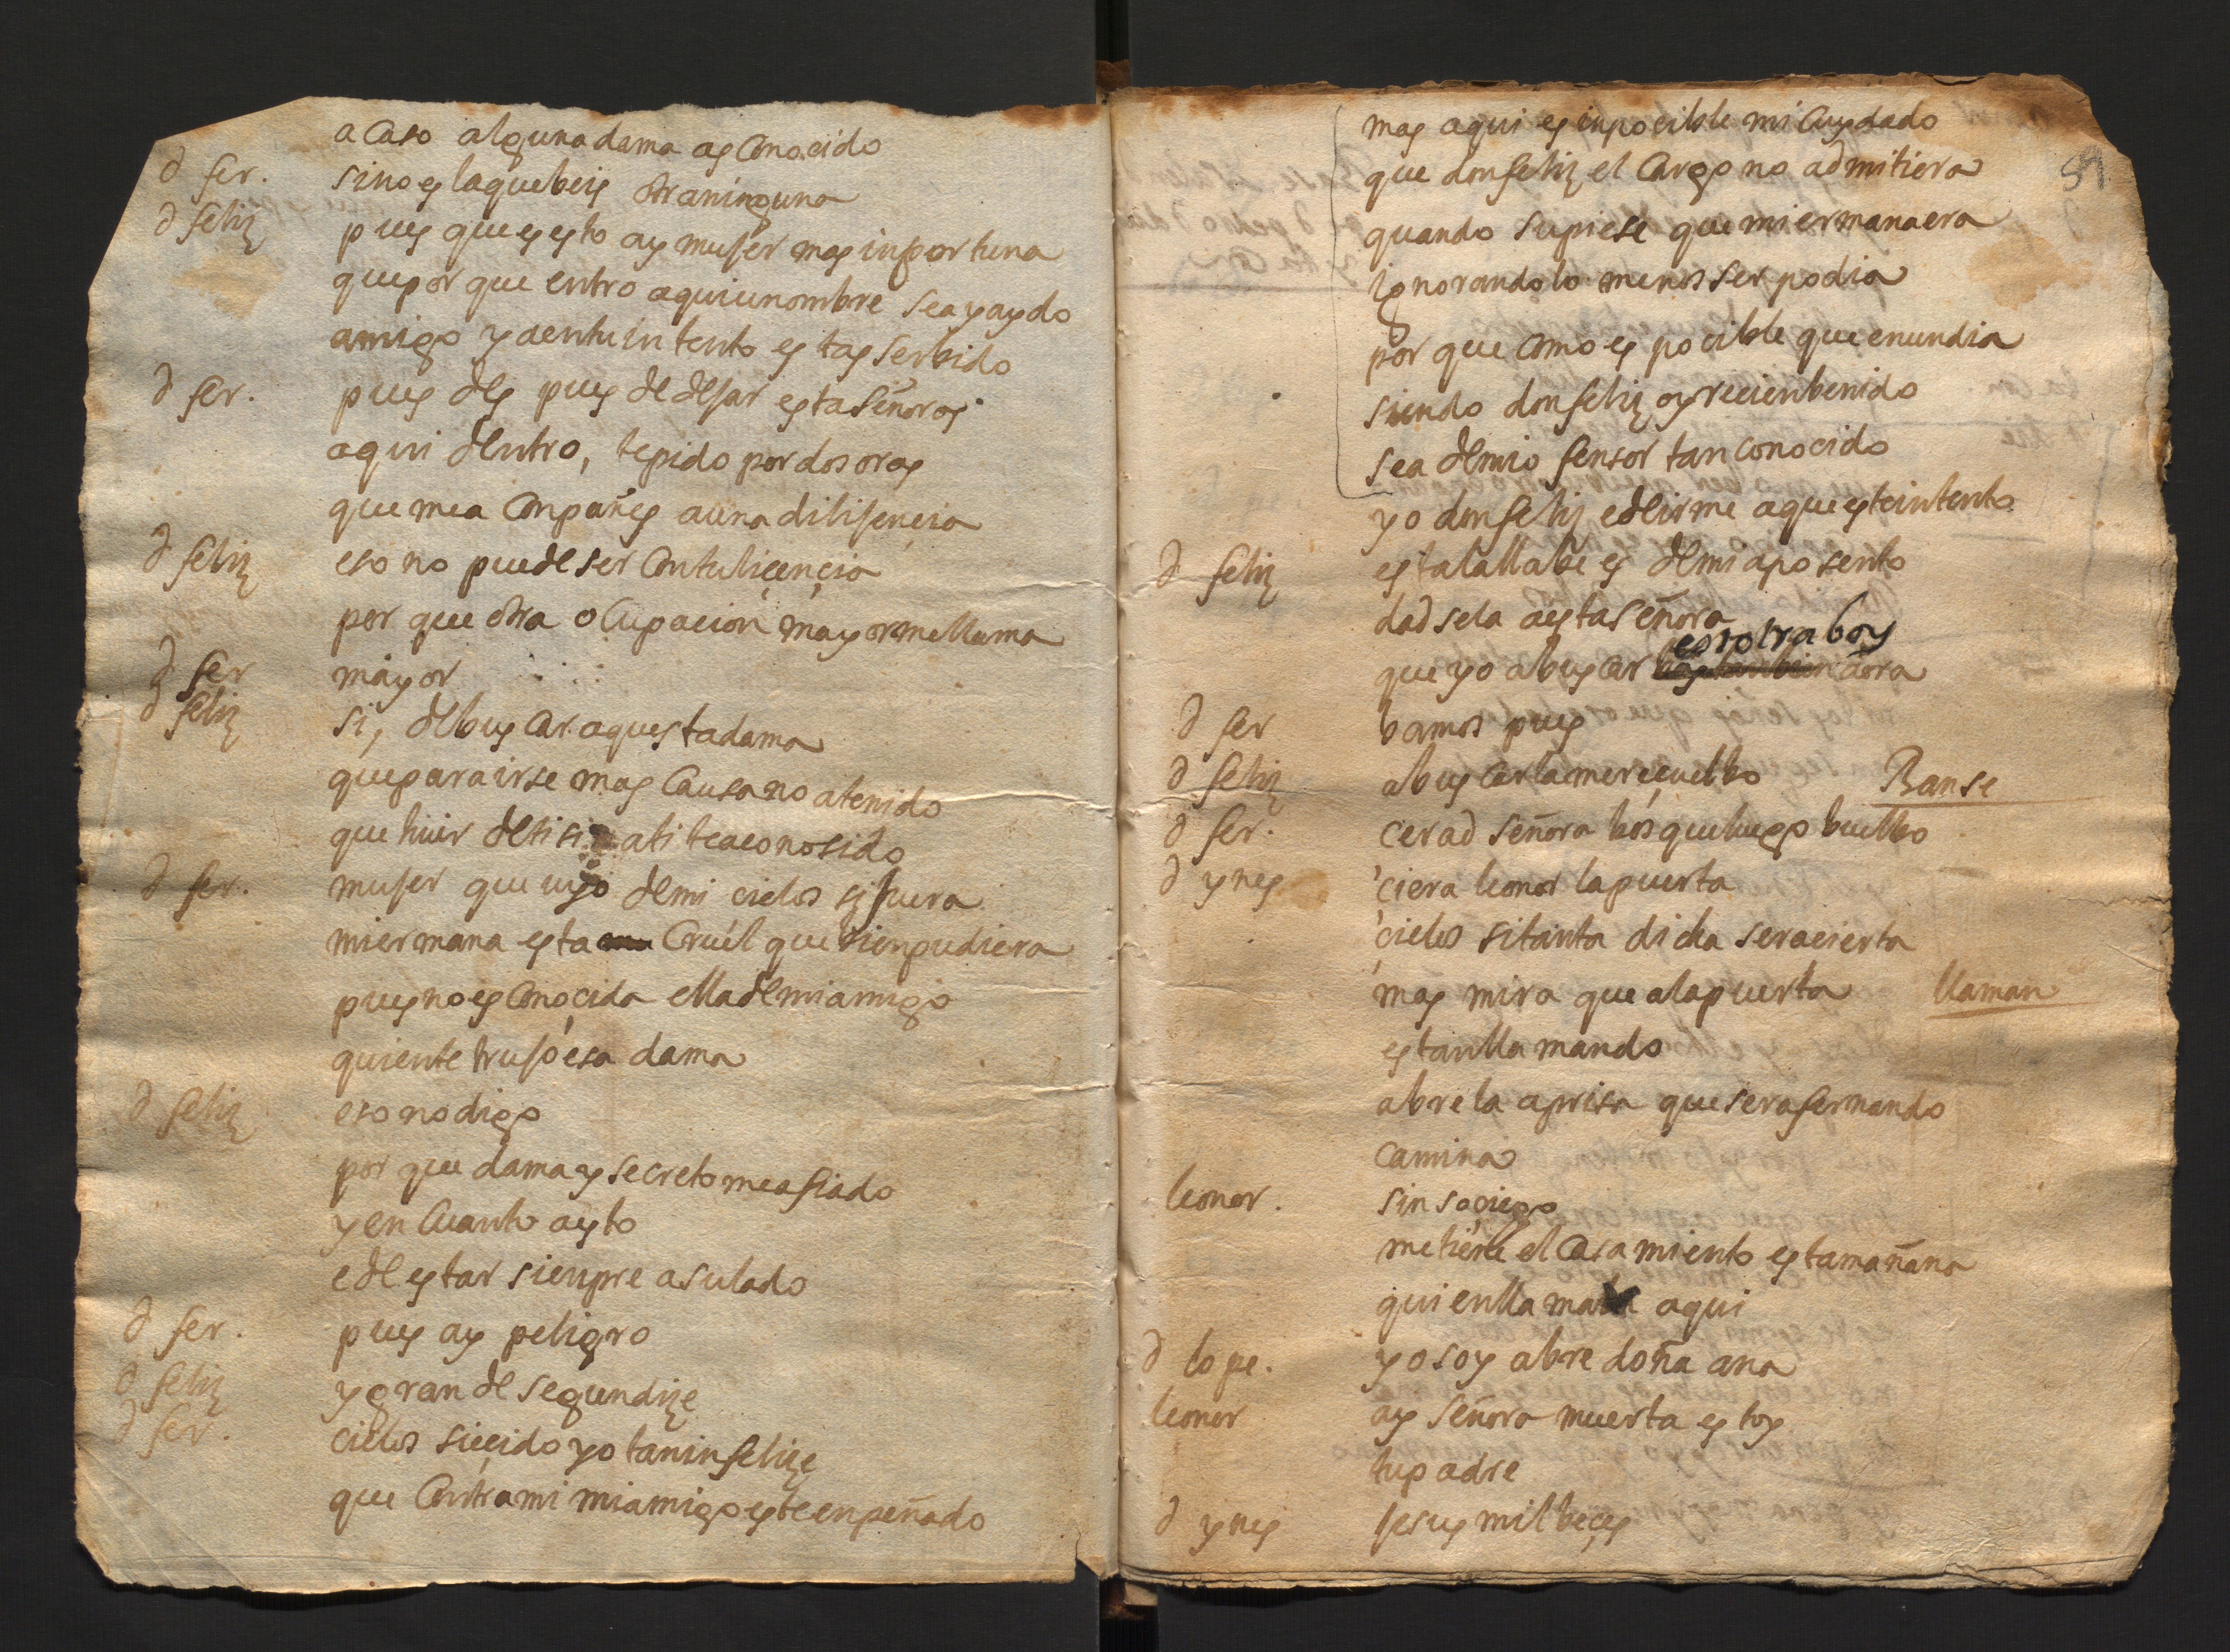 a caso alguna dama as conocido
d fer. sino es la que beis otra ninguna
d feliz pues que es esto ay muger mas inportuna
que por que entro aqui un ombre se a yaydo
amigo ya en tu intento estas serbido
d fer. pues des pues de dejar estas señoras
aqui dentro, te pido por dos oras
que me a conpañes a una dilijençia
d feliz eso no puede ser con tu liçençia
por que otra ocupaçion mayor me llama
d fer mayor
d feliz si, de buscar a questa dama
que para irse mas causa no a tenido
que huir de ti si a ti te a conosido
d fer. muger que uyo de mi cielos si fuera
mi ermana esta cruel que bien pudiera
pues no es conoçida ella de mi amigo
quien te trujo esa dama
d feliz eso no digo
por que dama y secreto me a fiado
y en cuanto a esto
e de estar sienpre a su lado
d fer. pues ay peligro
d feliz y grande segun dize
d fer. cielos si e çido yo tan infelize
que contra mi mi amigo este enpeñado
51
mas aqui es inpocible mi cuydado
que don feliz el cargo no admitiera
quando supiese que mi ermana era
ignorandolo menos ser podia
por que como es pocible que en un dia
siendo don feliz oy recien benido
sea de mi o fensor tan conocido
yo don feliz e de irme a queste intento
d feliz esta la llabe es de mi aposento
dadsela a esta señora
esotra boy
que yo a buscar aora
d fer bamos pues
d feliz a buscarla me resuelbo Banse
d fer. cerad señora bos que luego buelbo
d ynes ciera leonor la puerta
cielos si tanta dicha sera cierta
mas mira que a la puerta llaman
estan llamando
abrela aprisa que sera fernando
camina
leonor. sin sociego
me tiene el casamiento esta mañana
quien llama aqui
d lope. yo soy abre doña ana
leonor ay señora muerta estoy
tu padre
d ynes jesus mil beçes